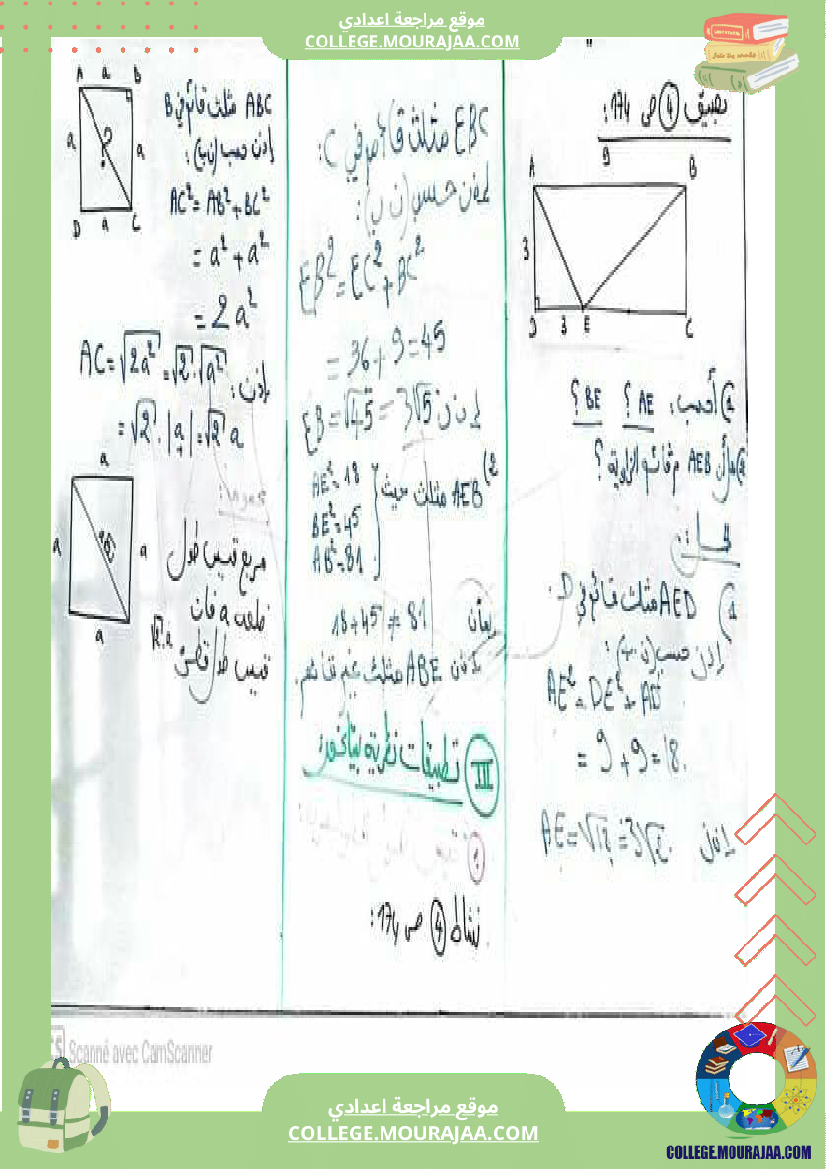 موقع مراجعة اعدادي
COLLEGE.MOURAJAA.COM
تطبيق 4 ص 174:
9
A B
3
D 3 E C
a) أحسب: AE ؟ BE ؟
AEB قائم الزاوية ؟
الحل:
a) AED مثلث قائم في D:
إذن حسب
AE² = DE² + AD
= 9 + 9 = 18.
إذن AE = √18 = 3√2.
EBC مثلث قائم في C:
إذن حسب
EB² = EC² + BC²
= 36 + 9 = 45
إذن EB = √45 = 3√5
2) AEB مثلث حيث
AE² = 18
BE² = 45
AB² = 81
بما أن 18 + 45 ≠ 81
إذن ABE مثلث غير قائم.
III تطبيقات نظرية بيتاغور:
1
نشاط 4 ص 174:
A a B
a ? a
D a C
ABC مثلث قائم في B
إذن حسب
AC² = AB² + BC²
= a² + a²
= 2a²
إذن: AC = √2a² = √2 . √a²
= √2 . |a| = √2 a
عموما:
a
a a
a
مربع قيس طول
ضلعه a فإن
قيس طول قطره √2.a
CS Scanné avec CamScanner
موقع مراجعة اعدادي
COLLEGE.MOURAJAA.COM
COLLEGE.MOURAJAA.COM